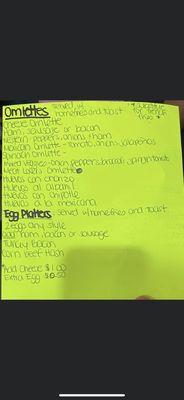 Omlettes served w/
homefries and toast
*substitute
for french
fries *
Cheese omlette
Ham, sausage or bacon
Western peppers, onions, ham
Mexican omlette - tomato, onions, jalapeños
Spinach omlette -
Mixed veggies - onion, peppers, broccoli, spinach, tomato
Meat lovers omlette
Huevos con chorizo
Huevos al albañil
Huevos con chipotle
Huevos a la mexicana
Egg Platters served w/ homefries and toast
2 eggs any style
add ham, bacon or sausage
Turkey bacon
Corn beef Hash
*Add Cheese $1.00
Extra Egg $0.50